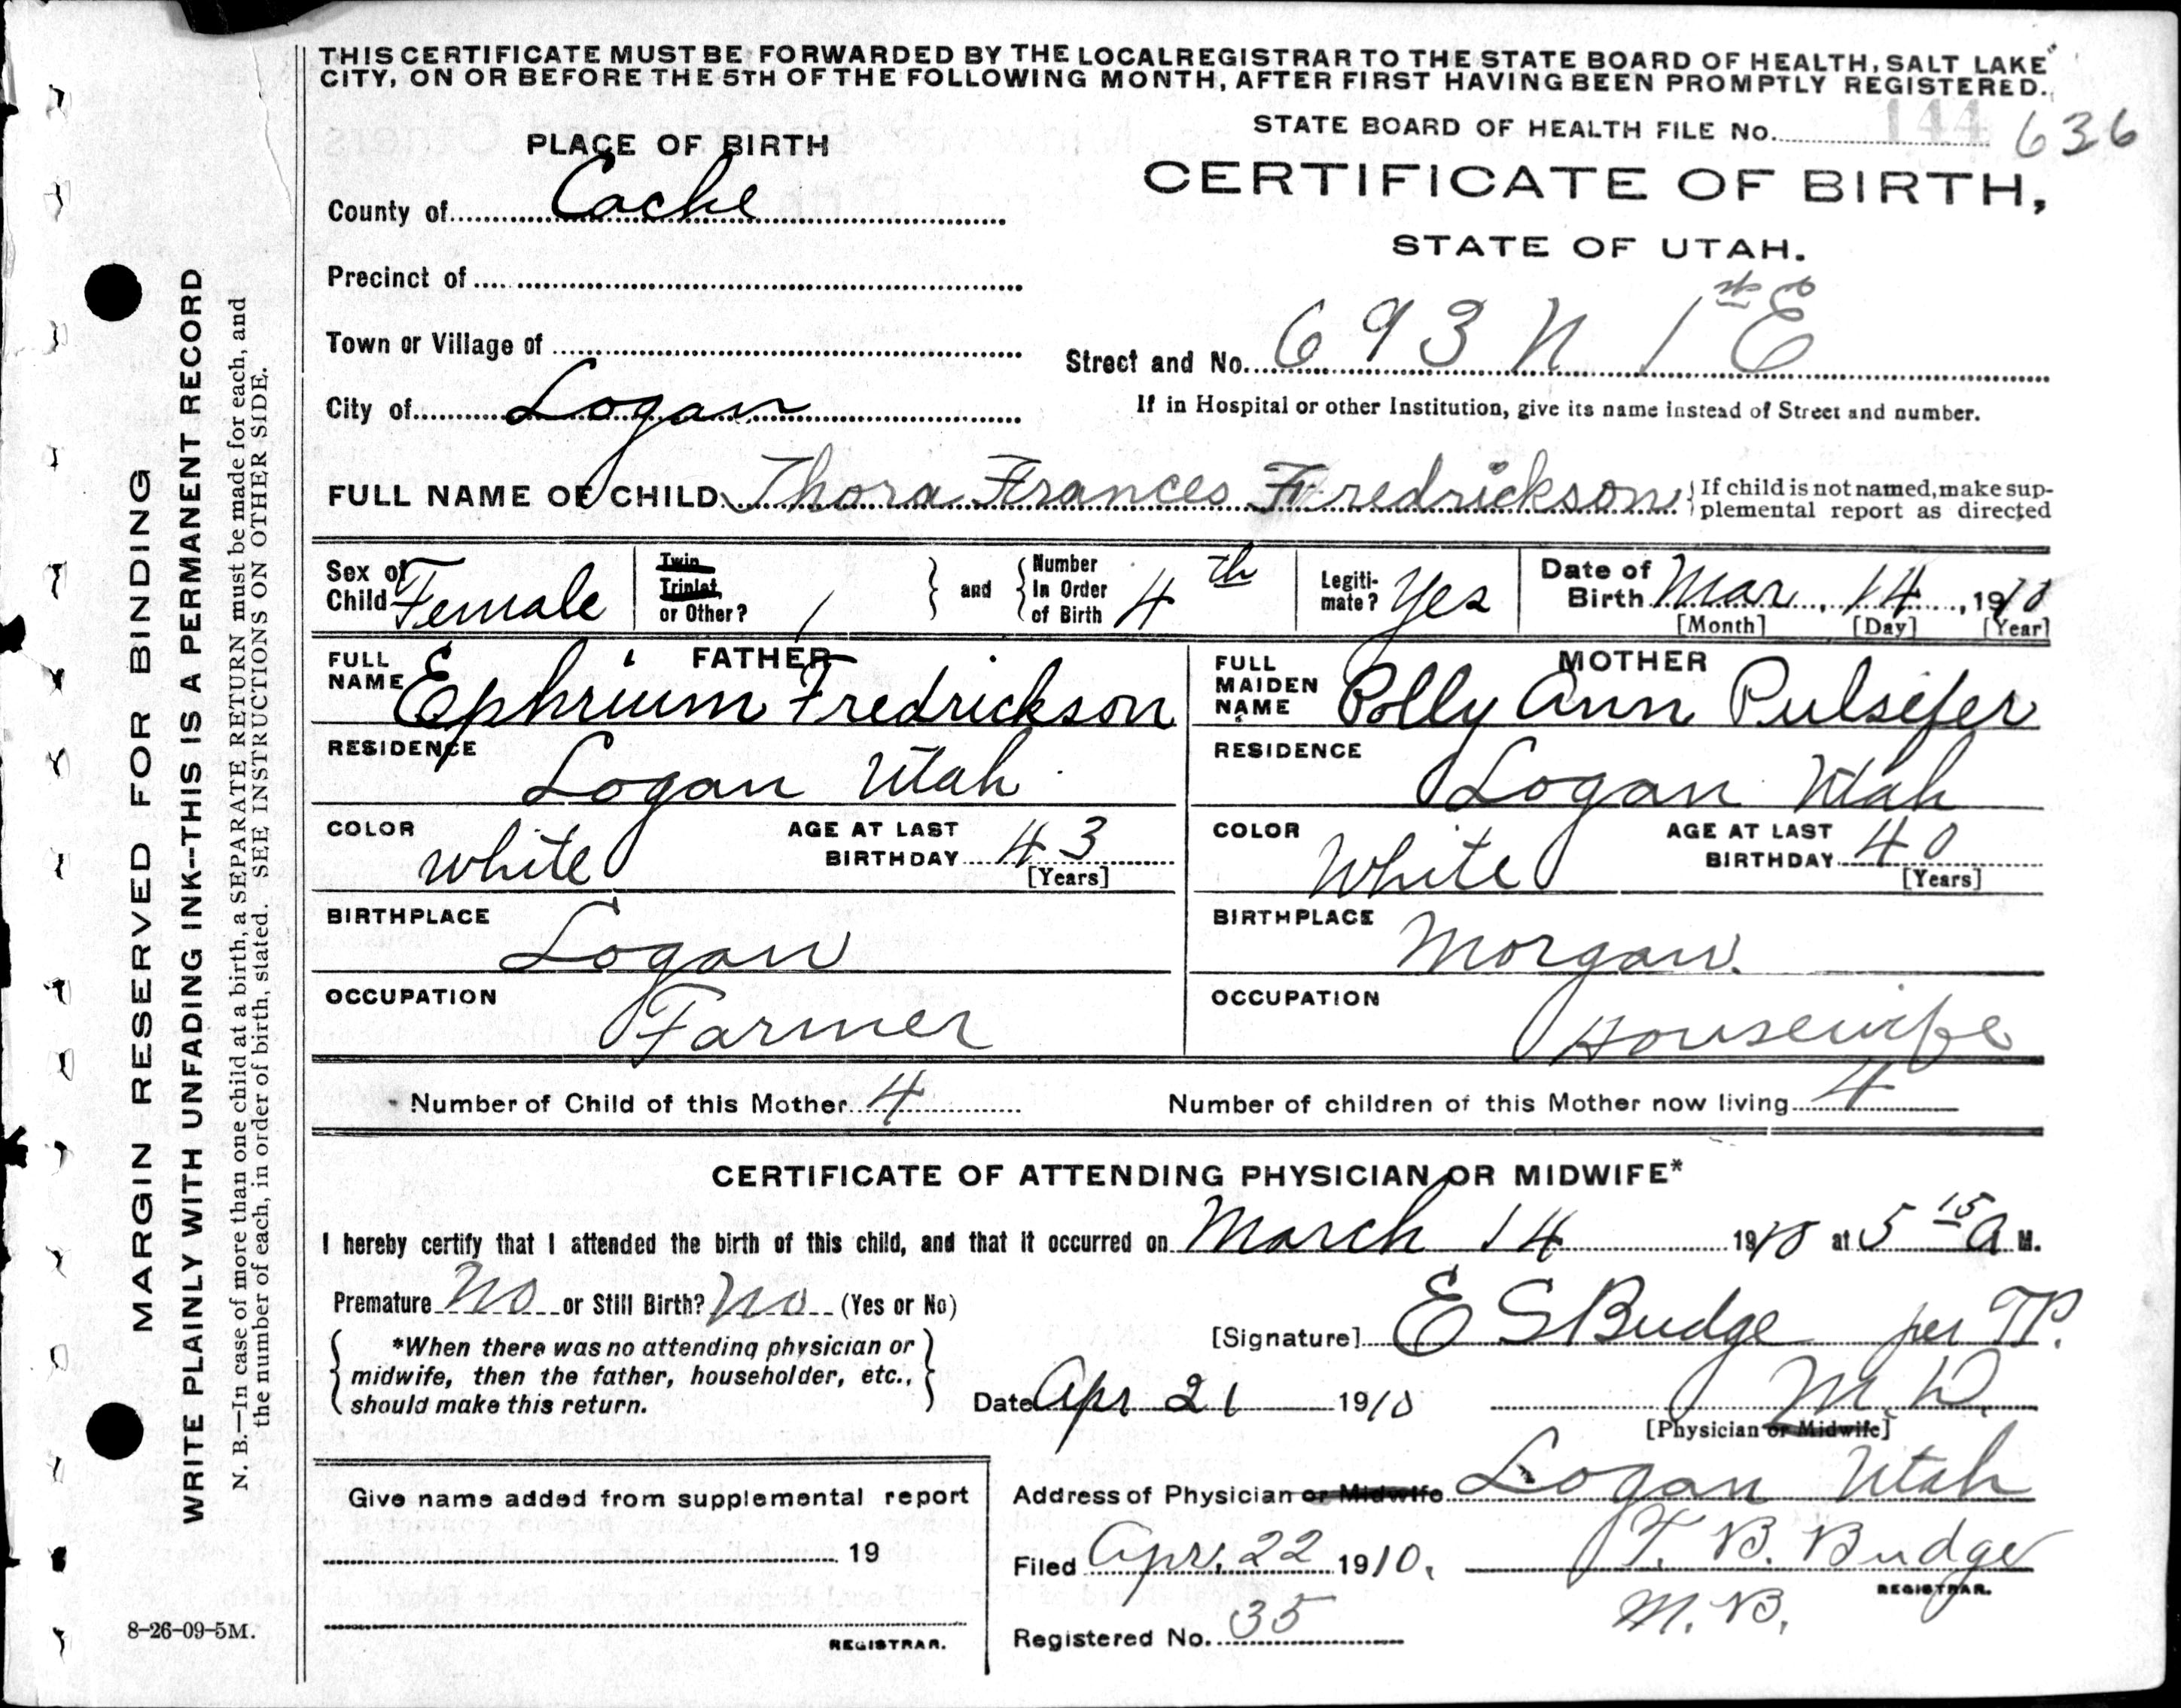 THIS CERTIFICATE MUST BE FORWARDED BY THE LOCAL REGISTRAR TO THE STATE BOARD OF HEALTH, SALT LAKE
CITY, ON OR BEFORE THE 5TH OF THE FOLLOWING MONTH, AFTER FIRST HAVING BEEN PROMPTLY REGISTERED.
STATE BOARD OF HEALTH FILE No. 144 636
PLACE OF BIRTH
CERTIFICATE OF BIRTH,
County of Cache
STATE OF UTAH.
Precinct of
Town or Village of
Street and No. 693 N 1st E
City of Logan
If in Hospital or other Institution, give its name instead of Street and number.
FULL NAME OF CHILD Thora Frances Fredrickson
If child is not named, make sup-
plemental report as directed
Sex of
Child Female
Twin
Triplet,
or Other? 1
and
Number
In Order
of Birth 4th
Legiti-
mate? Yes
Date of
Birth Mar. 14, 1910
[Month] [Day] [Year]
FATHER
FULL
NAME Ephrium Fredrickson
RESIDENCE
Logan Utah
COLOR
White
AGE AT LAST
BIRTHDAY 43
[Years]
BIRTHPLACE
Logan
OCCUPATION
Farmer
MOTHER
FULL
MAIDEN
NAME Polly Ann Pulsifer
RESIDENCE
Logan Utah
COLOR
White
AGE AT LAST
BIRTHDAY 40
[Years]
BIRTHPLACE
Morgan
OCCUPATION
Housewife
Number of Child of this Mother 4
Number of children of this Mother now living 4
CERTIFICATE OF ATTENDING PHYSICIAN OR MIDWIFE*
I hereby certify that I attended the birth of this child, and that it occurred on March 14 1910 at 5 15 A M.
Premature No or Still Birth? No (Yes or No)
*When there was no attending physician or
midwife, then the father, householder, etc.,
should make this return.
[Signature] E S Budge per TP.
Date Apr 21 1910
M.D.
[Physician or Midwife]
Give name added from supplemental report
19
REGISTRAR.
Address of Physician or Midwife Logan Utah
Filed Apr. 22 1910.
T. B. Budge
REGISTRAR.
M. B.
Registered No. 35
8-26-09-5M.
MARGIN RESERVED FOR BINDING
WRITE PLAINLY WITH UNFADING INK--THIS IS A PERMANENT RECORD
N. B.—In case of more than one child at a birth, a SEPARATE RETURN must be made for each, and
the number of each, in order of birth, stated. SEE INSTRUCTIONS ON OTHER SIDE.